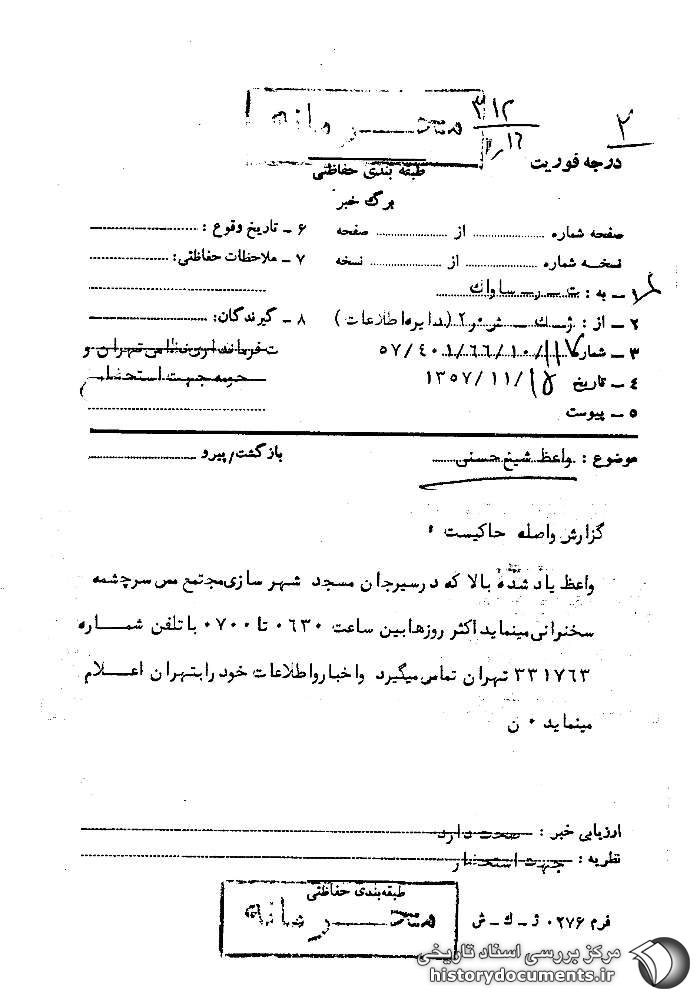 محرمانه
۳۱۲
۱۶
۲
درجه فوریت
طبقه بندی حفاظتی
برگ خبر
صفحه شماره از صفحه
نسخه شماره از نسخه
۱ - به : ت - ر - ساواک
۲ - از : ژ - ک - ش ور۲ (دایره اطلاعات)
۳ - شماره ۵۷/۴۰۱/۶۶/۱۰/۱۱۷
۴ - تاریخ ۱۳۵۷/۱۱/۱۵
۵ - پیوست
۶ - تاریخ وقوع :
۷ - ملاحظات حفاظتی:
۸ - گیرندگان:
ت فرمانداری نظامی تهران و
حومه جهت استحضار
موضوع : واعظ شیخ حسنی
بازگشت/پیرو
گزارش واصله حاکیست ۰
واعظ یاد شده بالا که در سیرجان مسجد شهر سازی مجتمع مس سرچشمه
سخنرانی مینماید اکثر روزها بین ساعت ۰۶۳۰ تا ۰۷۰۰ با تلفن شماره
۳۳۱۷۶۳ تهران تماس میگیرد و اخبار و اطلاعات خود را بتهران اعلام
مینماید ۰ ن
ارزیابی خبر : صحت دارد
نظریه : جهت استحضار
طبقه‌بندی حفاظتی
محرمانه
فرم ۰۲۷۶ ژ - ک - ش
مرکز بررسی اسناد تاریخی
historydocuments.ir